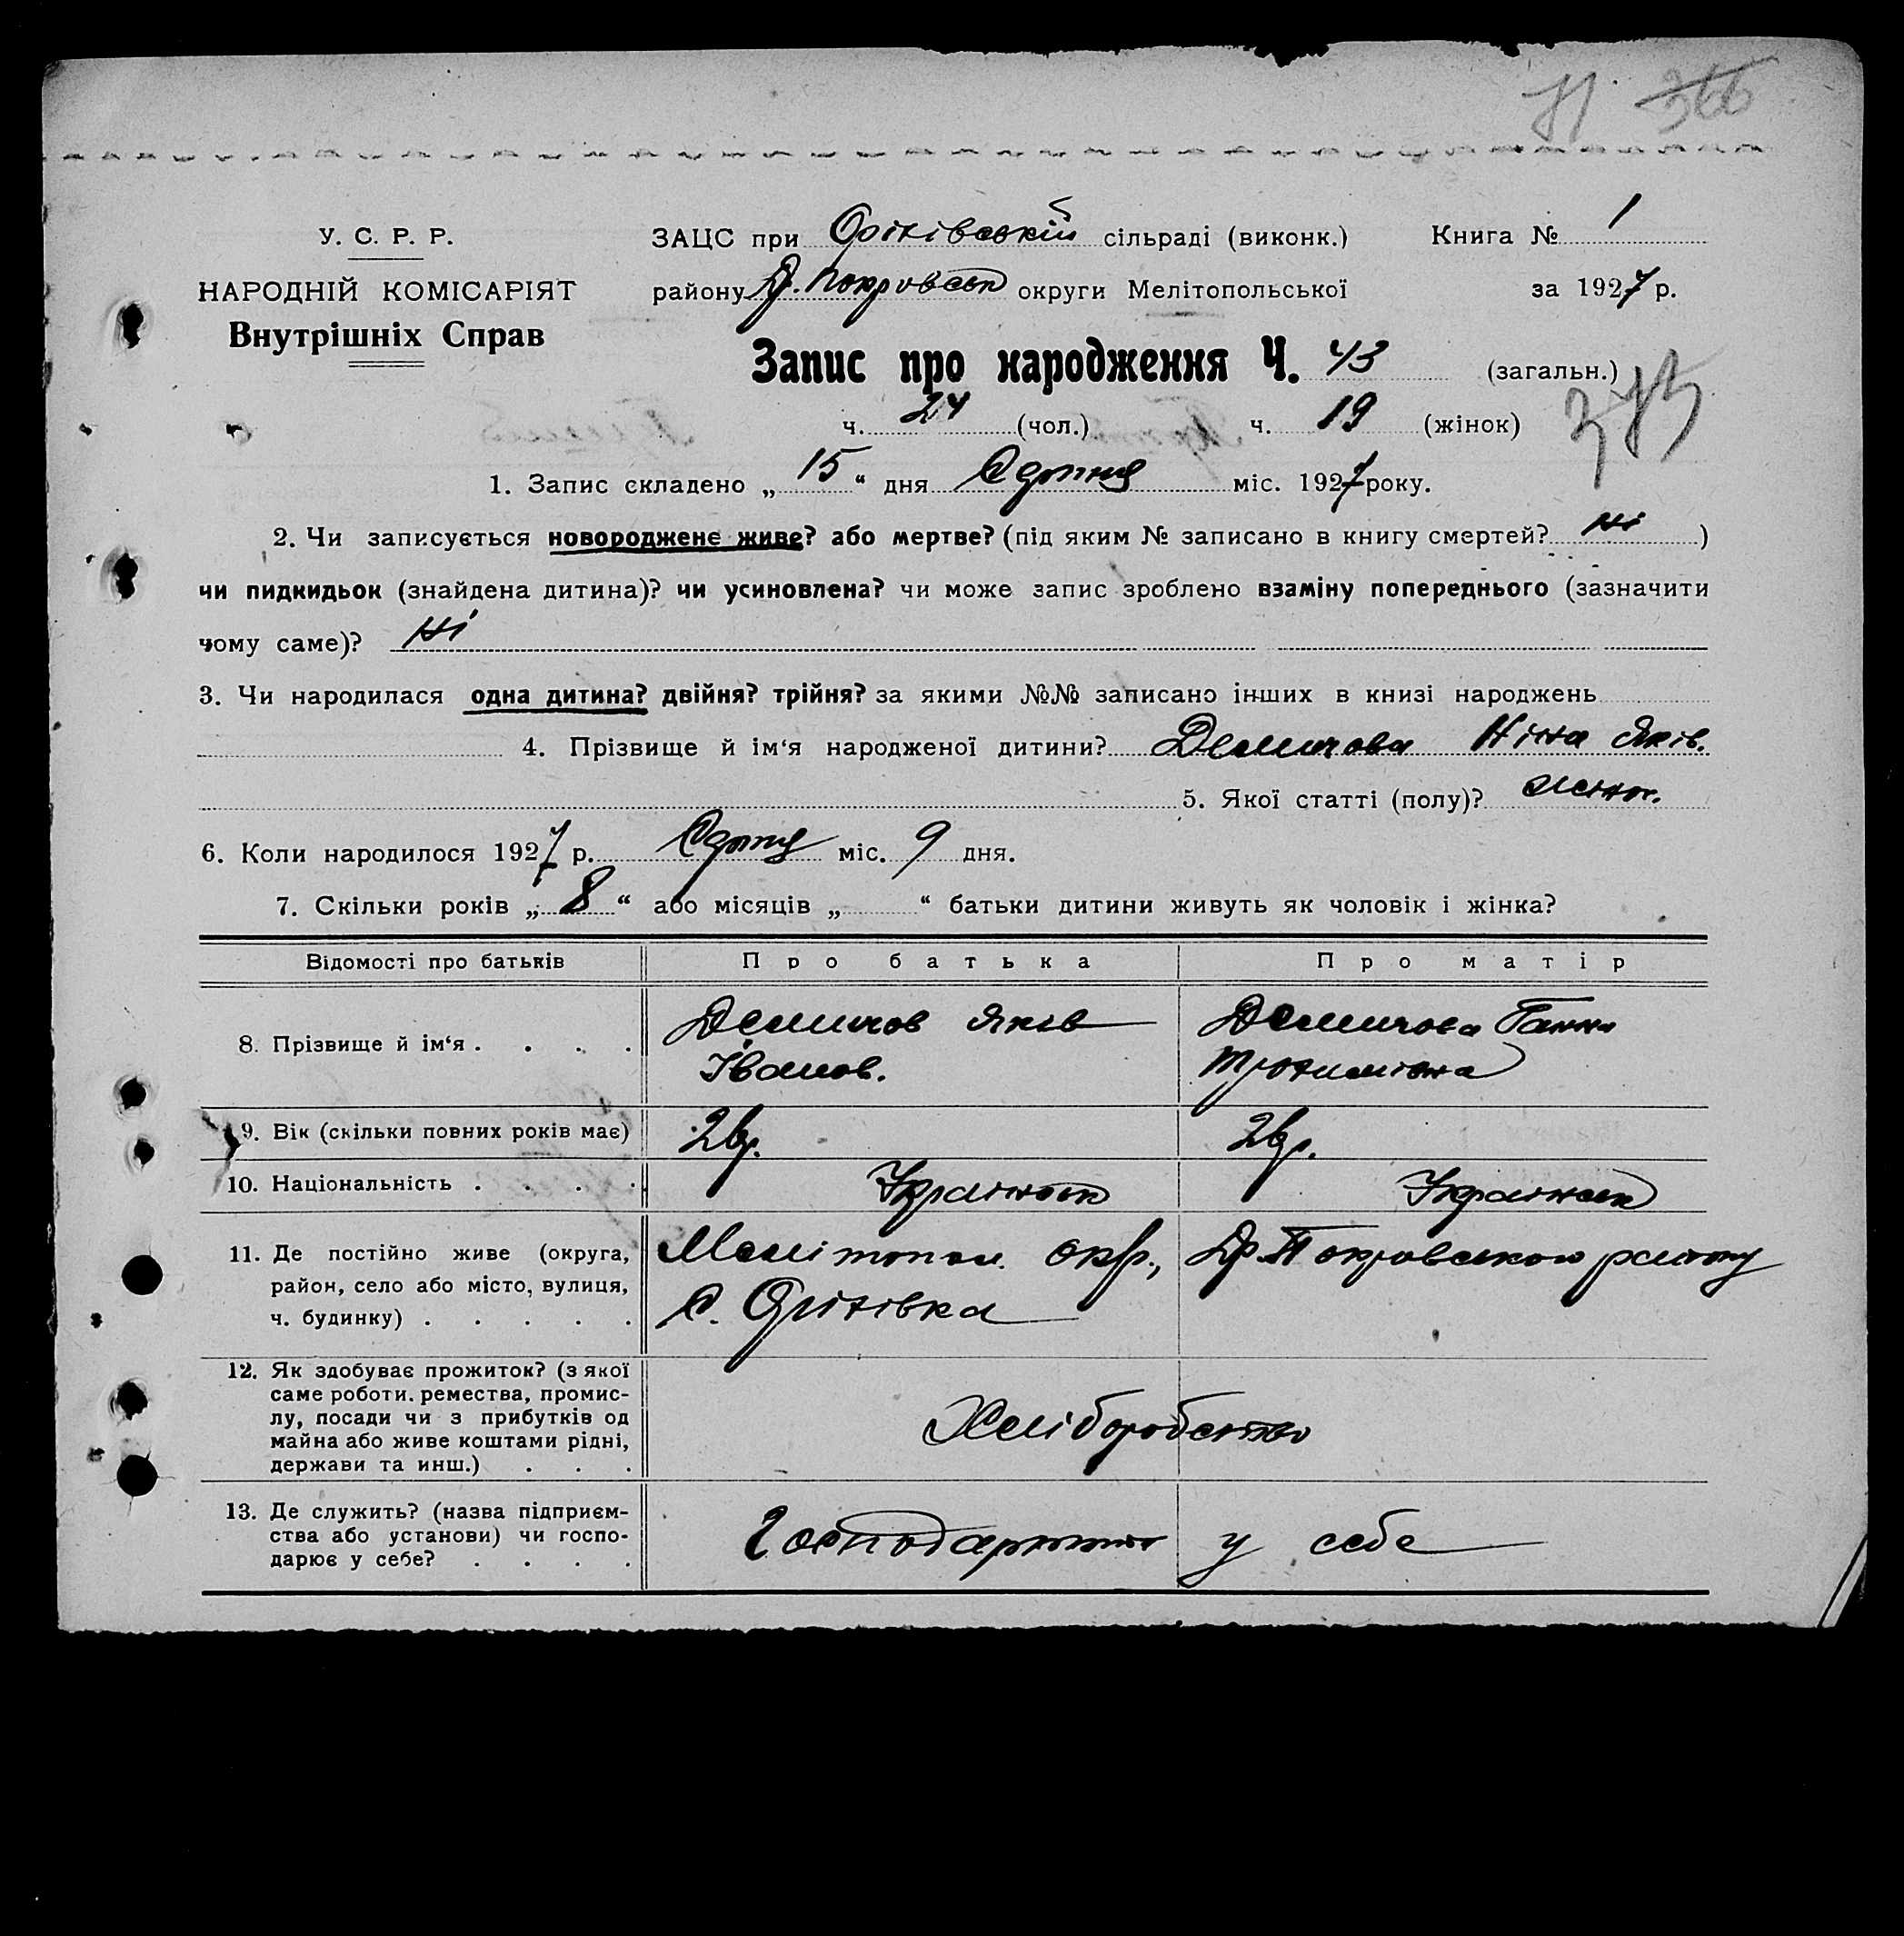 71 366
У. С. Р. Р.
НАРОДНІЙ КОМІСАРІЯТ
Внутрішніх Справ
ЗАЦС при Оріхівській сільраді (виконк.) Книга № 1
району Др. Покровськ округи Мелітопольської за 1927 р.
Запис про народження Ч. 43 (загальн.)
375
ч. 24 (чол.) ч. 19 (жінок)
1. Запис складено „ 15 “ дня Серпня міс. 1927 року.
2. Чи записується новороджене живе? або мертве? (під яким № записано в книгу смертей? Ні )
чи пидкидьок (знайдена дитина)? чи усиновлена? чи може запис зроблено взаміну попереднього (зазначити
чому саме)? Ні
3. Чи народилася одна дитина? двійня? трійня? за якими №№ записано інших в книзі народжень
4. Прізвище й ім‘я народженої дитини? Демичова Ніна Яків.
5. Якої статті (полу)? жіноч.
6. Коли народилося 1927 р. Серпня міс. 9 дня.
7. Скільки років „ 8 “ або місяців „ “ батьки дитини живуть як чоловік і жінка?
Відомості про батьків Про батька Про матір
8. Прізвище й ім‘я . . . . Демичов Яків Демичова Ганна
Іванов. Трохимівна
9. Вік (скільки повних років має) 26 р. 26 р.
10. Національність . . . . Українськ Українськ
11. Де постійно живе (округа, Мелітопол. окр., Др. Покровського району
район, село або місто, вулиця, С. Оріхівка
ч. будинку) . . . . .
12. Як здобуває прожиток? (з якої
саме роботи. ремества, промис-
лу, посади чи з прибутків од Хліборобство
майна або живе коштами рідні,
держави та инш.) . . .
13. Де служить? (назва підприєм-
ства або установи) чи госпо- у себе
дарює у себе? . . . .